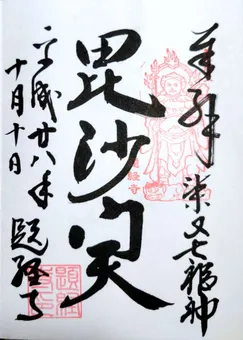 奉拝
柴又七福神
毘沙門天
平成廿八年
十月十日
題経寺
題経寺